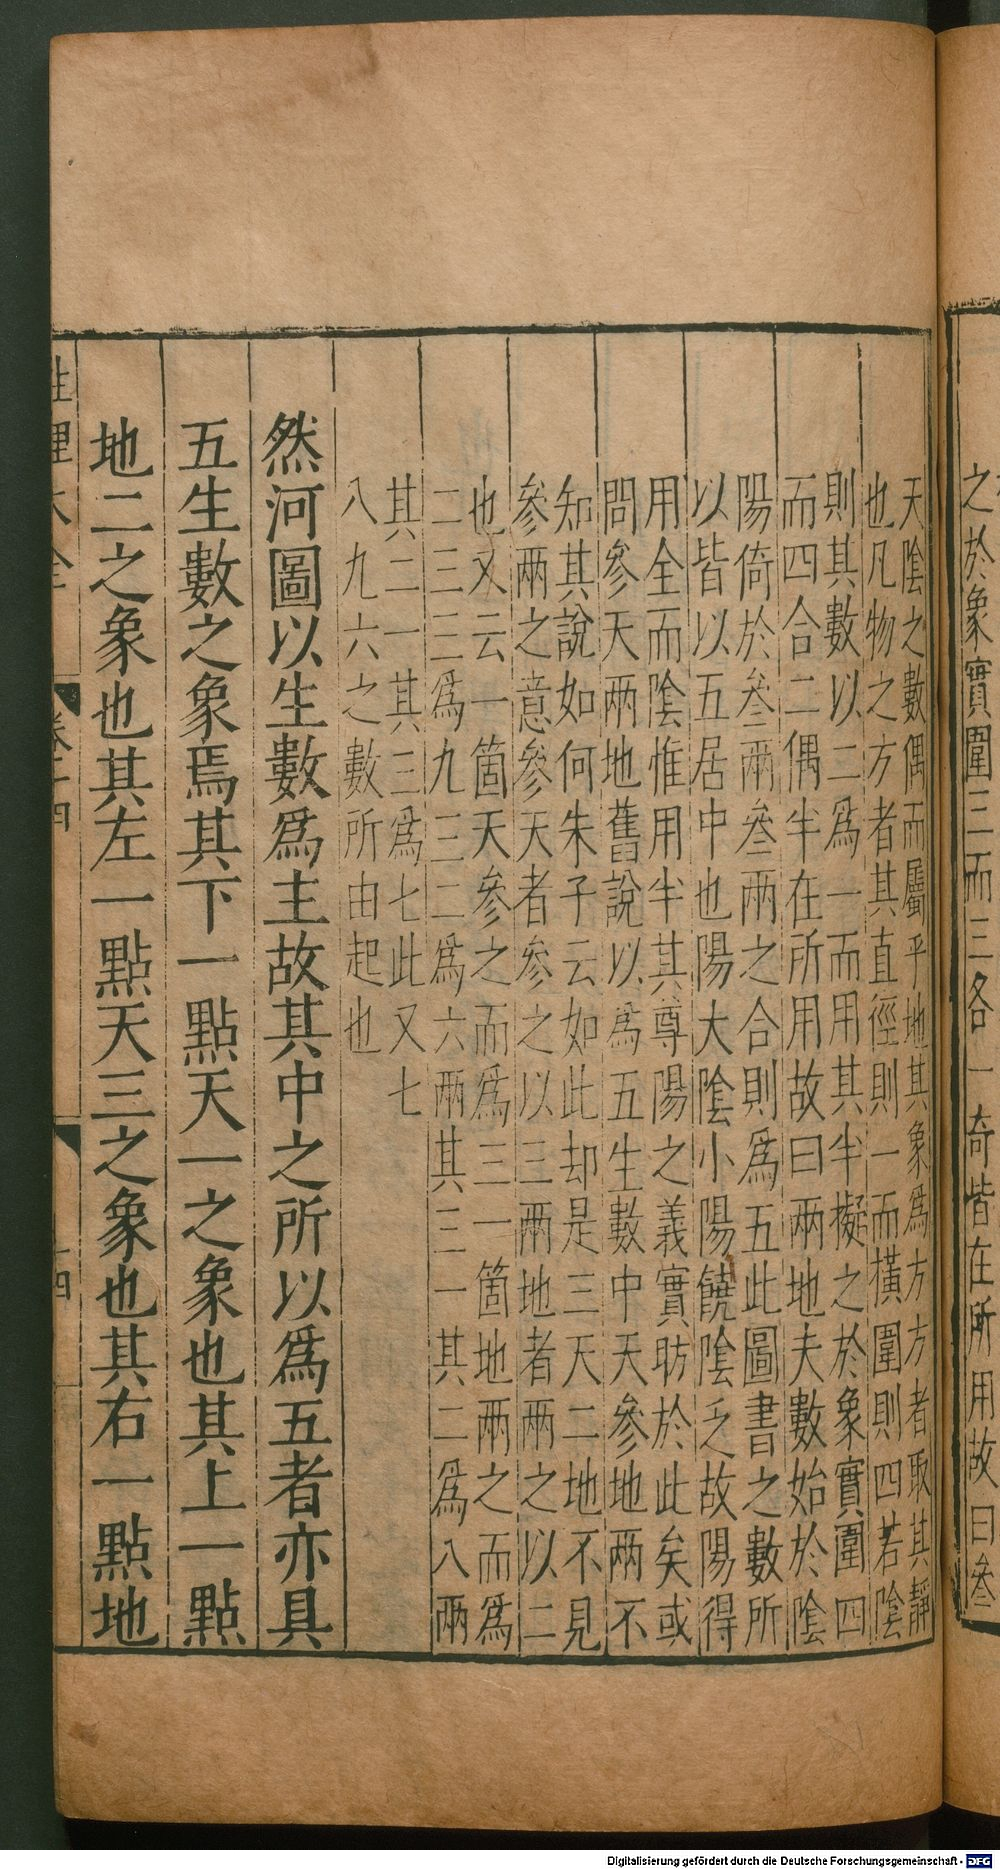 之於象實圍三而三各一奇皆在所用故曰叅
天陰之數偶而屬乎地其象爲方方者取其靜
也凡物之方者其直徑則一而橫圍則四若陰
則其數以二爲一而用其半擬之於象實圍四
而四合二偶半在所用故曰兩地夫數始於陰
陽倚於叅兩叅兩之合則爲五此圖書之數所
以皆以五居中也陽大陰小陽饒陰乏故陽得
用全而陰惟用半其尊陽之義實昉於此矣或
問參天兩地舊說以爲五生數中天參地兩不
知其說如何朱子云如此却是三天二地不見
參兩之意參天者參之以三兩地者兩之以二
也又云一箇天參之而爲三一箇地兩之而爲
二三三爲九三二爲六兩其三一其二爲八兩
其二一其三爲七此又七
八九六之數所由起也
然河圖以生數爲主故其中之所以爲五者亦具
五生數之象焉其下一點天一之象也其上一點
地二之象也其左一點天三之象也其右一點地
Digitalisierung gefördert durch die Deutsche Forschungsgemeinschaft - DFG